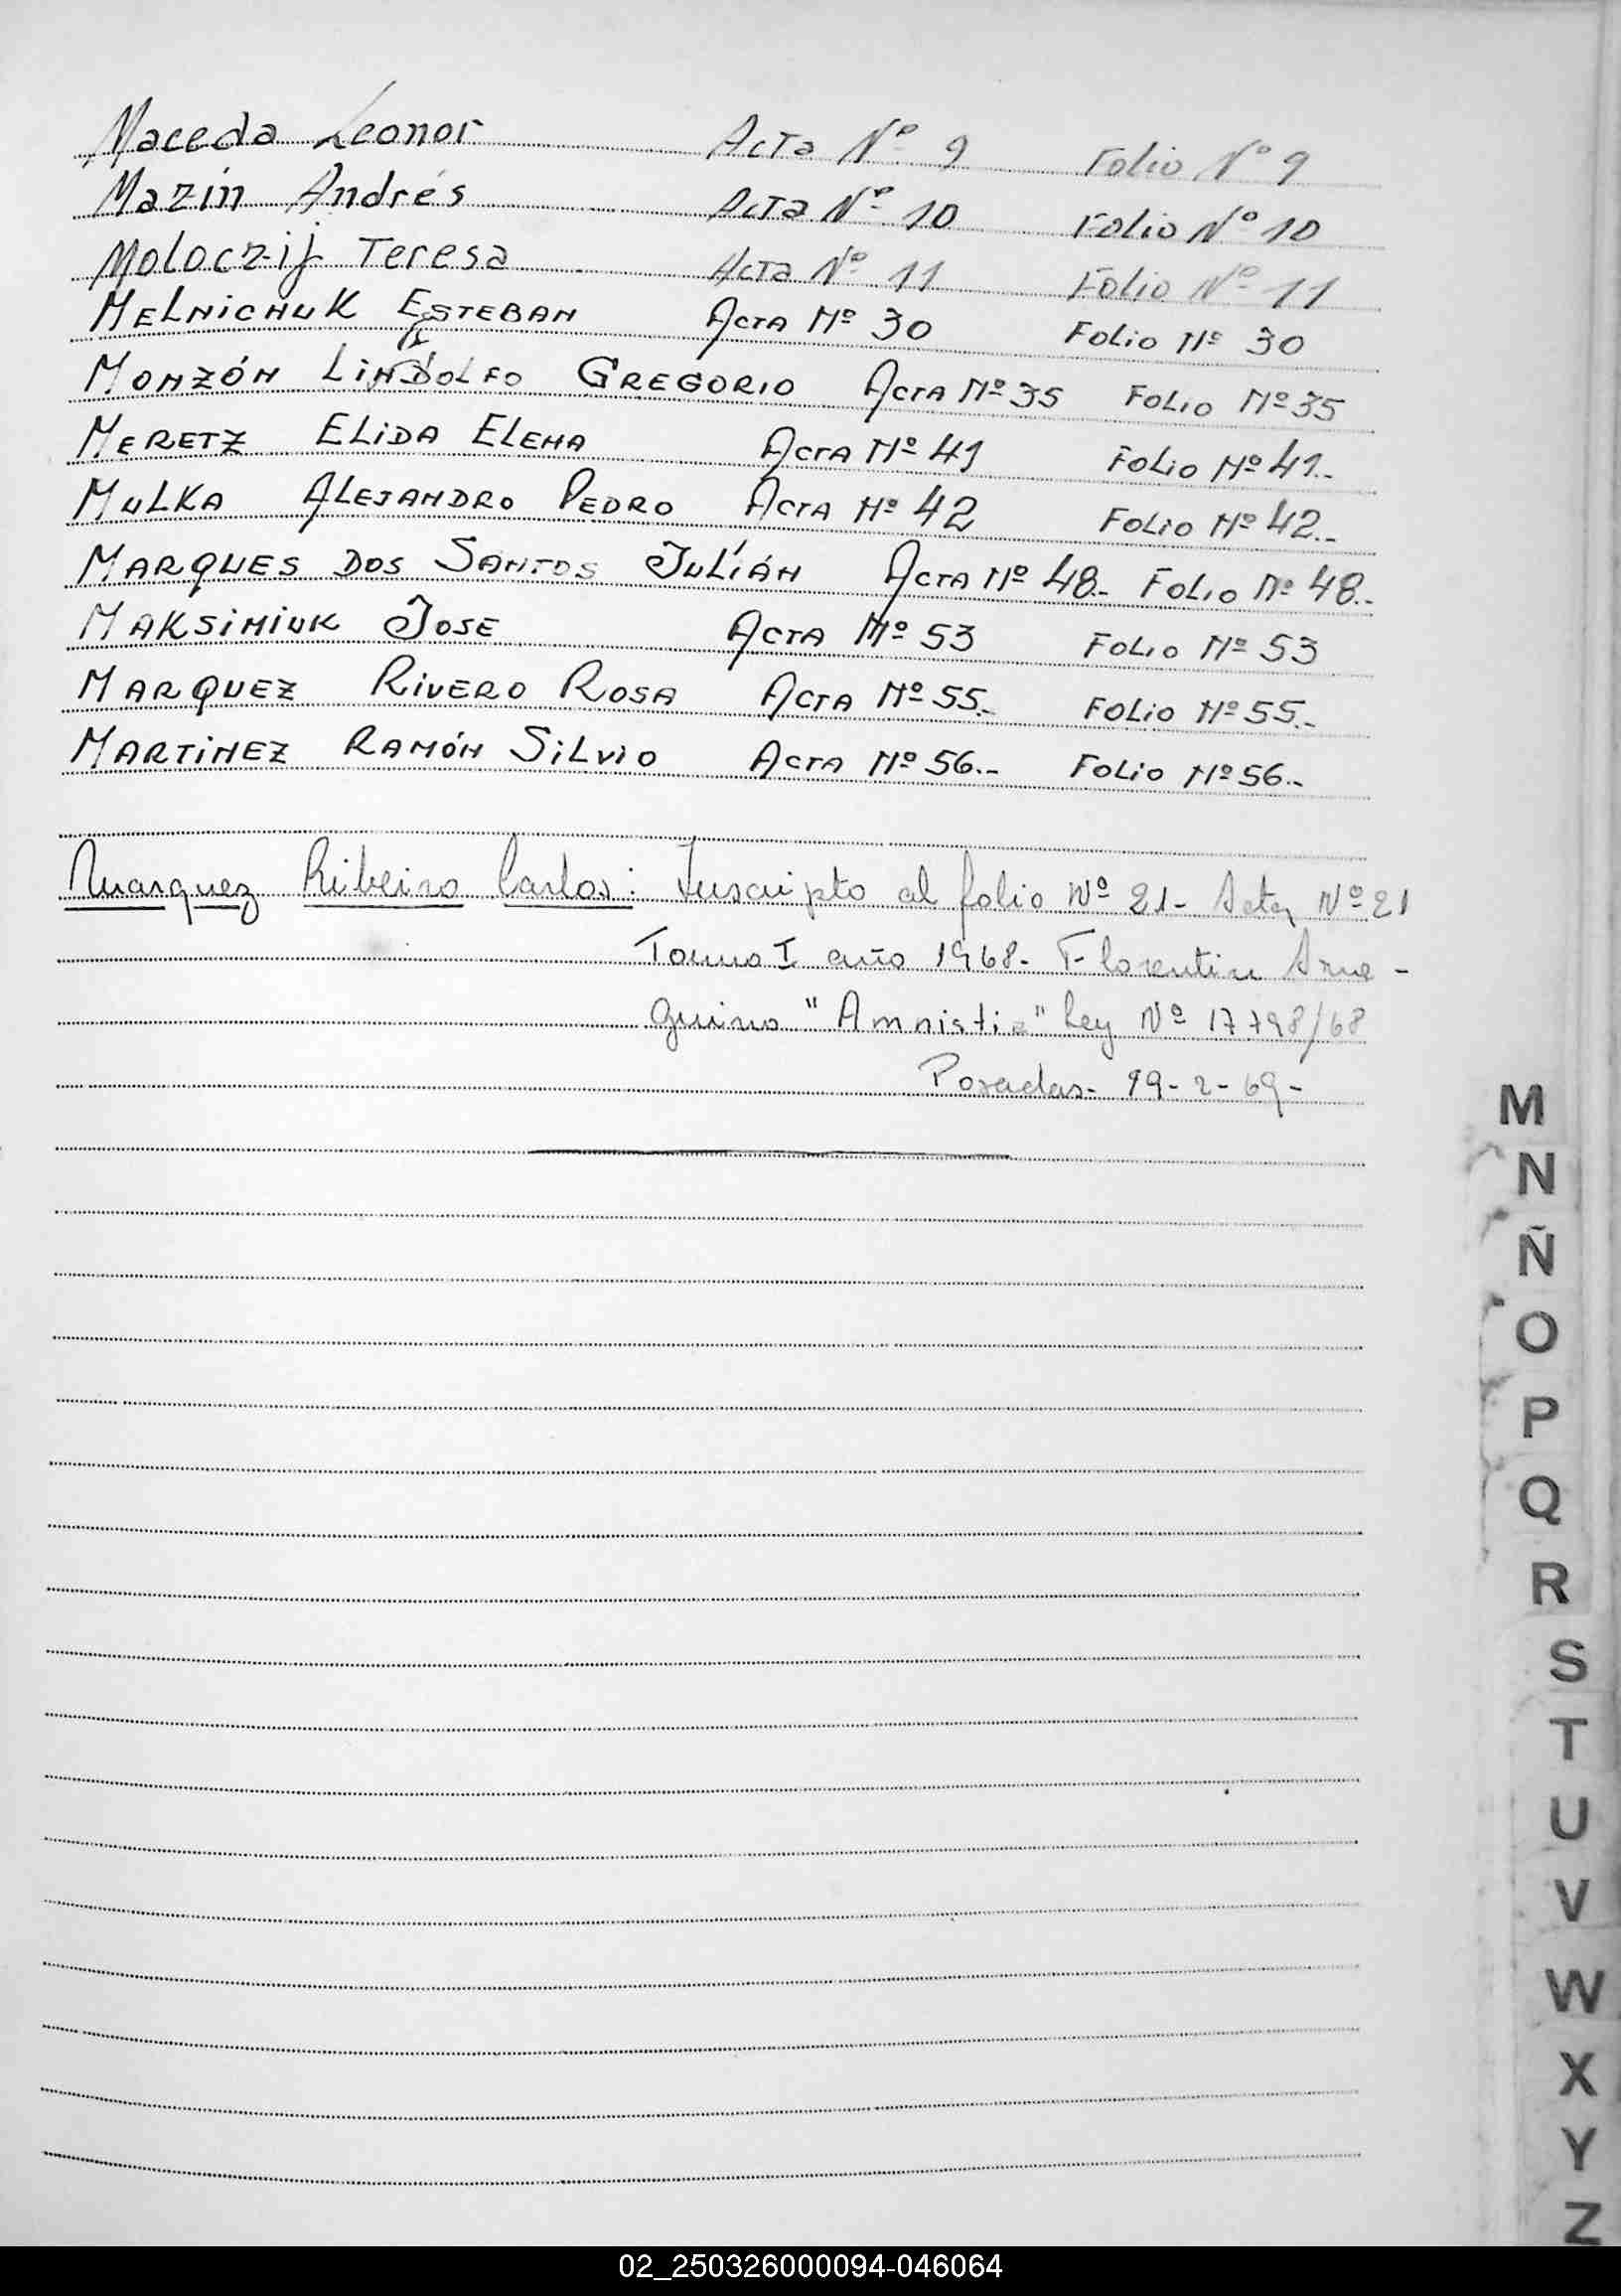 Maceda Leonor Acta Nº 9 Folio Nº 9
Mazin Andrés Acta Nº 10 Folio Nº 10
Moloczij Teresa Acta Nº 11 Folio Nº 11
MELNICHUK ESTEBAN ACTA Nº 30 FOLIO Nº 30
MONZÓN LINDOLFO GREGORIO ACTA Nº 35 FOLIO Nº 35
MERETZ ELIDA ELENA ACTA Nº 41 FOLIO Nº 41.-
MULKA ALEJANDRO PEDRO ACTA Nº 42 FOLIO Nº 42.-
MARQUES DOS SANTOS JULIÁN ACTA Nº 48.- FOLIO Nº 48.-
MAKSIMIUK JOSE ACTA Nº 53 FOLIO Nº 53
MARQUEZ RIVERO ROSA ACTA Nº 55.- FOLIO Nº 55.-
MARTINEZ RAMÓN SILVIO ACTA Nº 56.- FOLIO Nº 56.-
Marquez Ribeiro Carlos: Inscripto al folio Nº 21- Acta Nº 21
Tomo I año 1968- Florentin Ame-
guino "Amnistia" Ley Nº 17798/68
Posadas- 19-2-69-
M
N
Ñ
O
P
Q
R
S
T
U
V
W
X
Y
Z
02_250326000094-046064